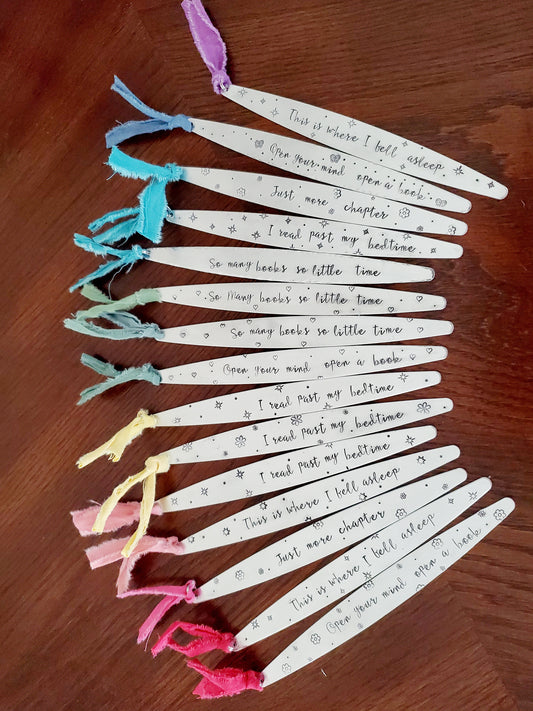 This is where I fell asleep
Open your mind open a book
Just more chapter
I read past my bedtime
So many books so little time
So many books so little time
So many books so little time
Open your mind open a book
I read past my bedtime
I read past my bedtime
I read past my bedtime
This is where I fell asleep
Just more chapter
This is where I fell asleep
Open your mind open a book